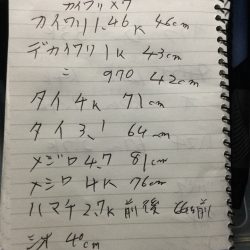 カイワリ×7
カイワリ 1.46K 46cm
デカイワリ 1K 43cm
〃 970 42cm
タイ 4K 71cm
タイ 3.1 64cm
メジロ 4.7 81cm
メジロ 4K 76cm
ハマチ 2.7K前後 66前
シオ 40cm